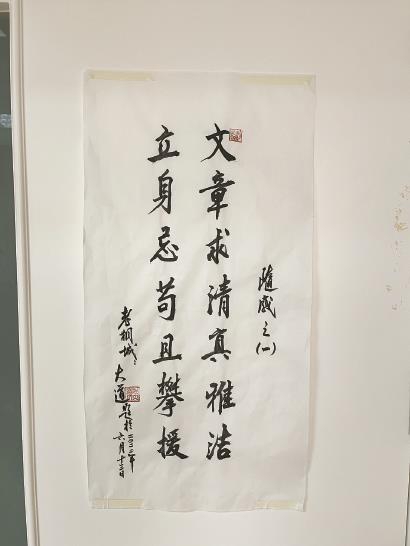 随感之(一)
文章求清真雅洁
立身忌苟且攀援
老桐城
大道题于二〇二二年
六月十二日